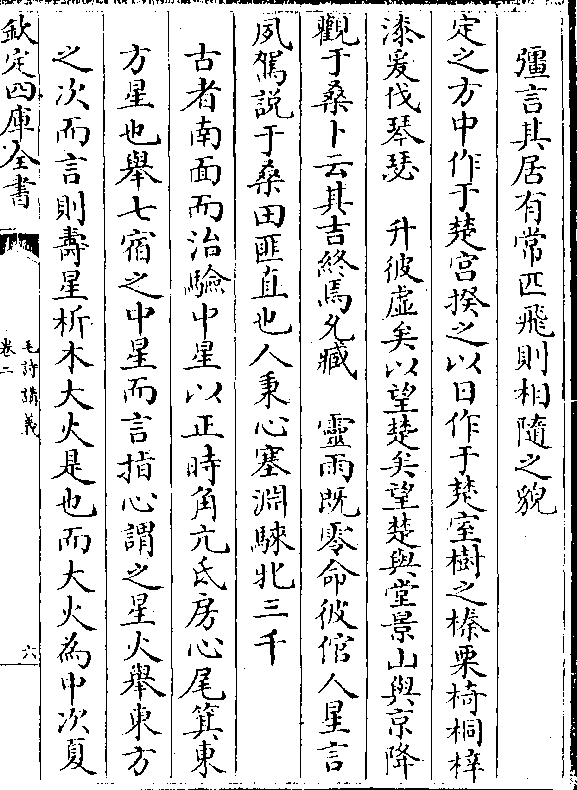 彊言其居有常匹飛則相隨之貌
定之方中作于楚宮揆之以日作于楚室樹之榛栗椅桐梓
漆爰伐琴瑟　升彼虛矣以望楚矣望楚與堂景山與京降
觀于桑卜云其吉終焉允臧　靈雨既零命彼倌人星言
夙駕說于桑田匪直也人秉心塞淵騋牝三千
古者南面而治驗中星以正時角亢氐房心尾箕東
方星也舉七宿之中星而言指心謂之星火舉東方
之次而言則壽星析木大火是也而大火為中次夏
欽定四庫全書
毛詩講義
卷二
六